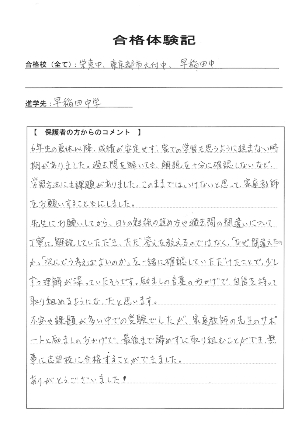 合格体験記
合格校（全て）：栄東中、東京都市大付中、早稲田中
進学先：早稲田中学
【 保護者の方からのコメント 】
6年生の夏休み以降、成績が安定せず、家での学習も思うように進まない時
期がありました。過去問を解いても、間違いを十分に確認しないなど、
学習方法にも課題がありました。このままではいけないと思って、家庭教師
をお願いすることにしました。
先生にお願いしてから、日々の勉強の進め方や過去問の間違いについて
丁寧に解説していただき、ただ答えを教えるのではなく、「なぜ間違えたの
か」「次にどう考えればよいのか」を一緒に確認していただけたことで、少し
ずつ理解が深まっていたようです。励ましの言葉のおかげで、自信を持って
取り組めるようになったと思います。
不安や課題が多い中での受験でしたが、家庭教師の先生のサポ
ートと励ましのおかげで、最後まで諦めずに取り組むことができ、無
事に志望校に合格することができました。
ありがとうございました！